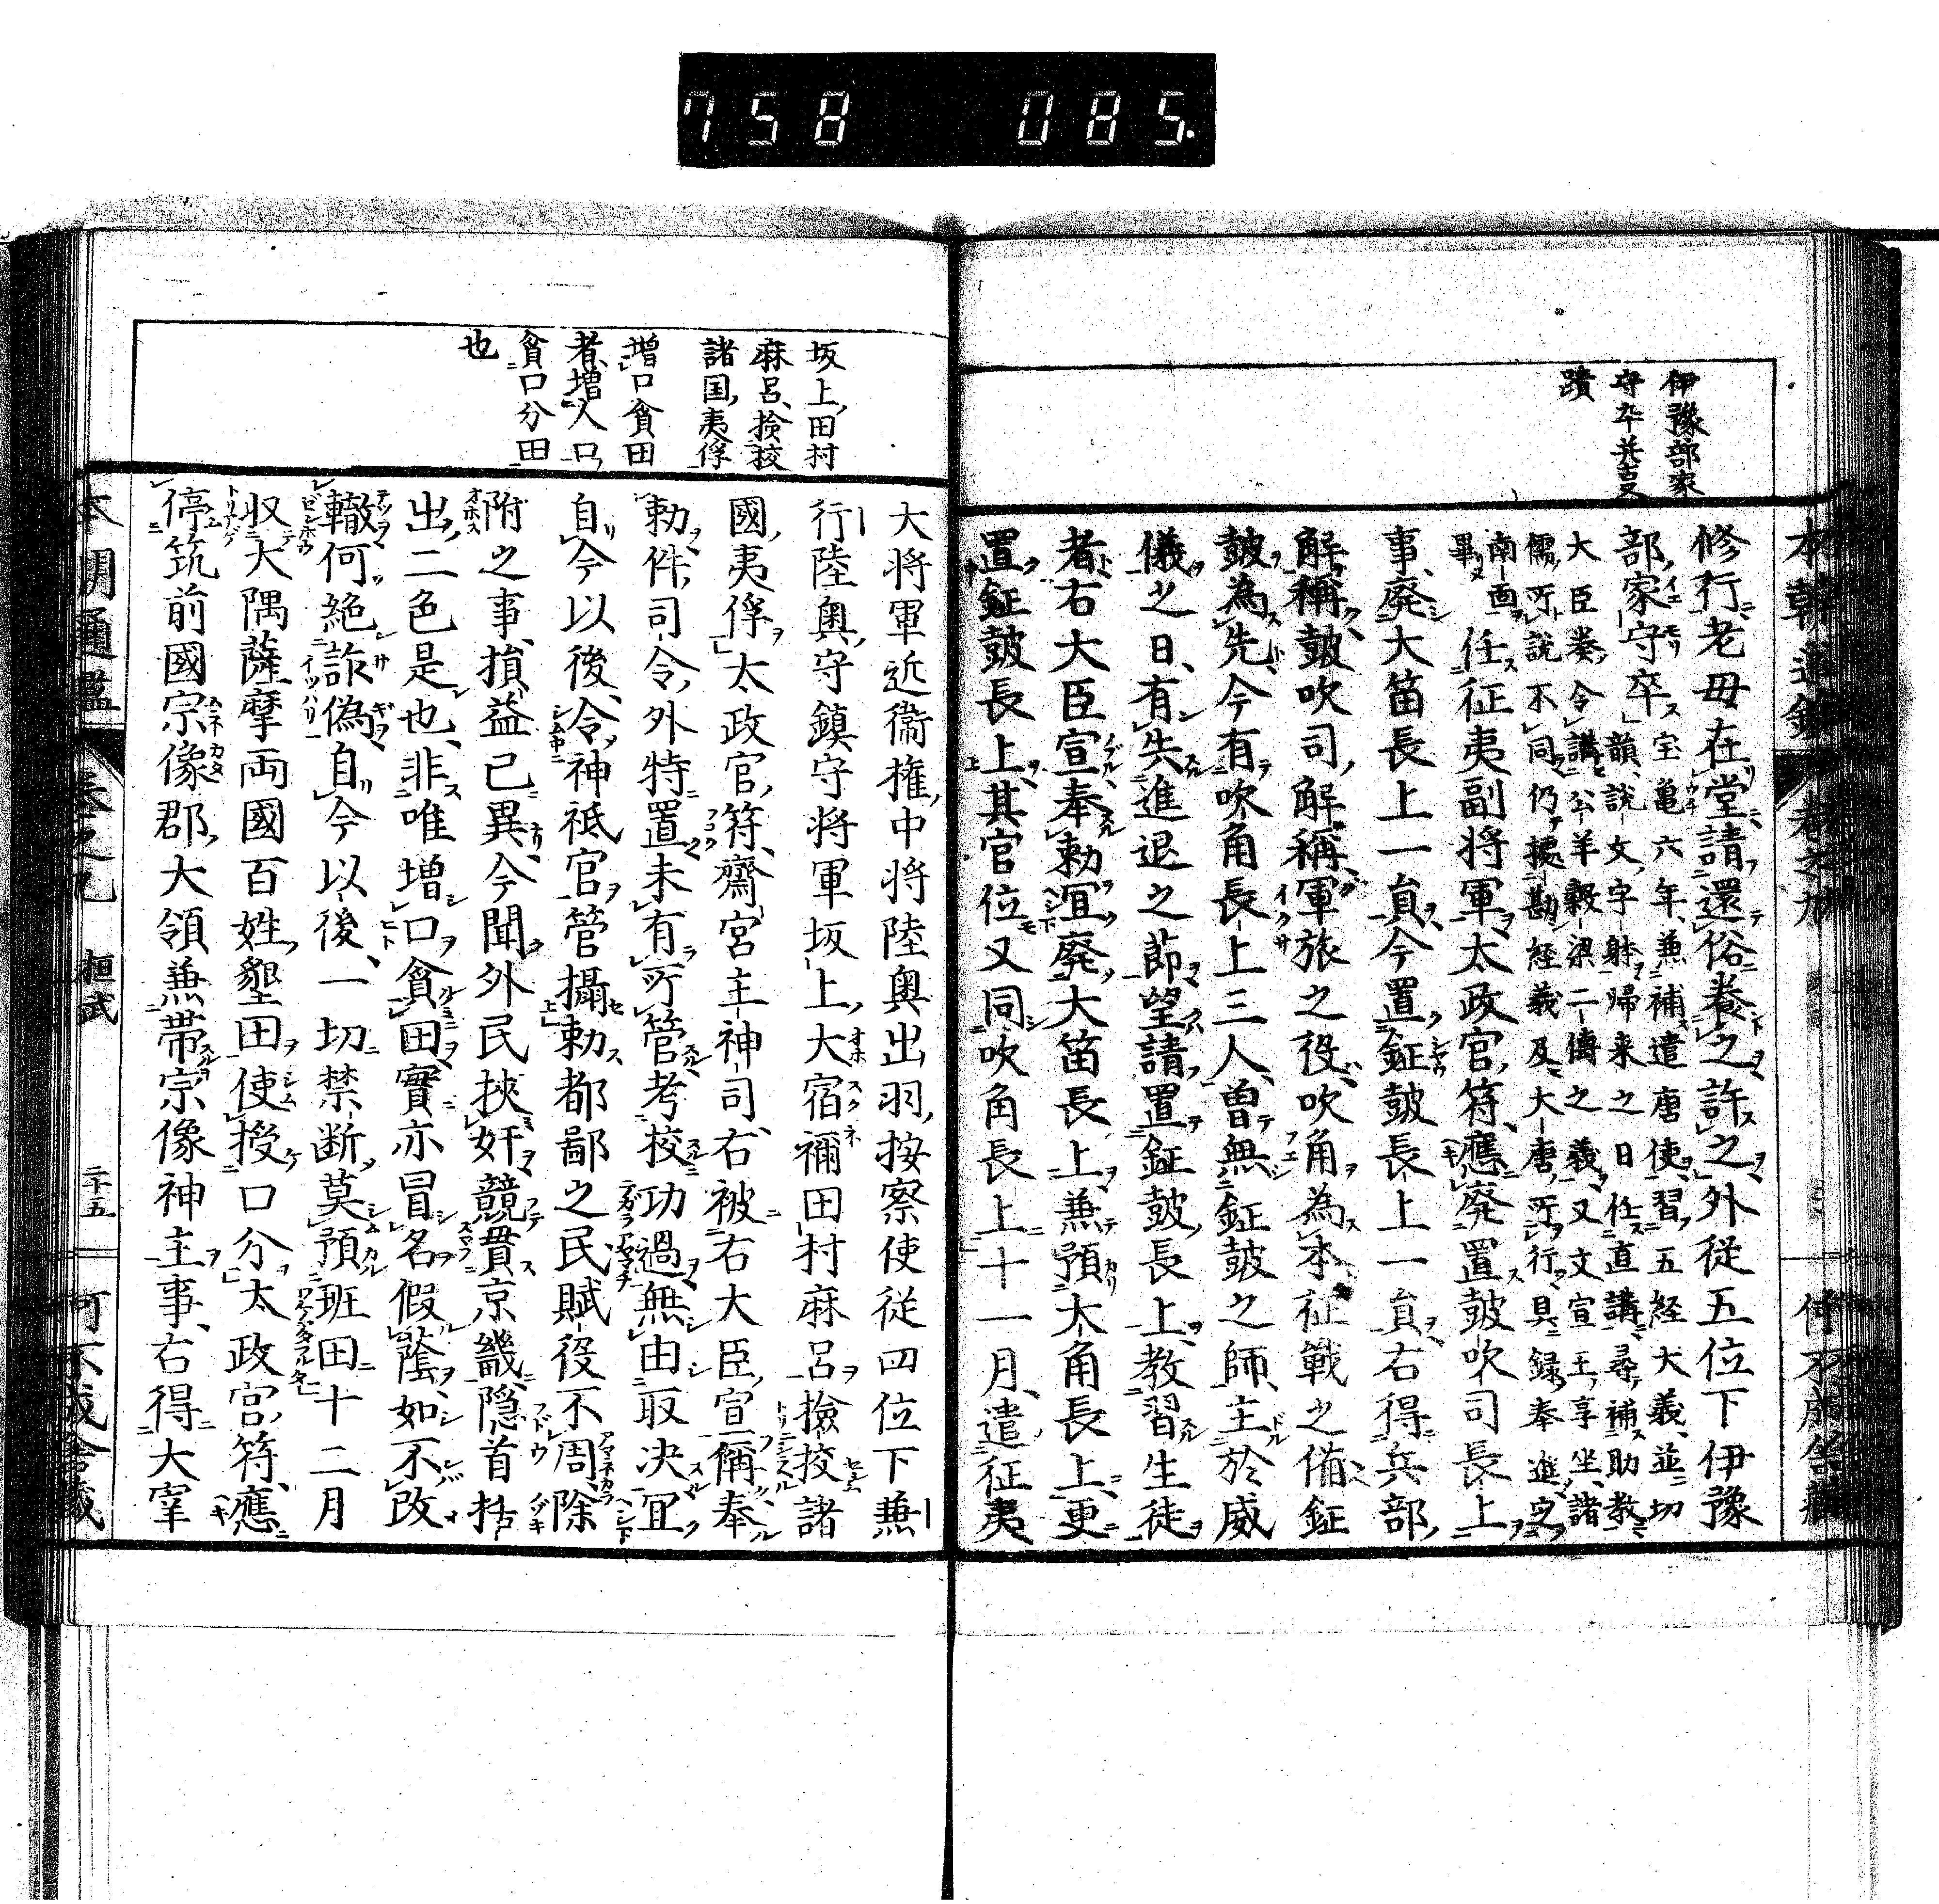 758 085.
伊豫部家
守卒并吉又
蹟
修行老母在堂請還俗養之許之外従五位下伊豫
部家守卒宝亀六年兼補遣唐使習五経大義並切
韻說文字躰帰来之日任直講尋補助教
大臣奏令講公羊穀梁二傳之義又文宣王享坐諸
儒所說不同仍據勘経義及大唐所行具録奉進之
南面畢任征夷副将軍太政官符應廃置鼓吹司長上
事廃大笛長上一員今置鉦鼓長上一員右得兵部
解稱鼓吹司解稱軍旅之役吹角為本征戰之備鉦
鼓為先今有吹角長上三人曽無鉦鼓之師主於威
儀之日有失進退之節望請置鉦鼓長上教習生徒
者右大臣宣奉勅冝廃大笛長上兼預大角長上更
置鉦鼓長上其官位又同吹角長上十一月遣征夷
坂上田村
麻呂撿挍
諸国夷俘
增口貪田
者增人口
貪口分田
也
大将軍近衞権中将陸奥出羽按察使従四位下兼
行陸奥守鎮守将軍坂上大宿禰田村麻呂撿挍諸
國夷俘太政官符齋宮主神司右被右大臣宣稱奉
勅件司令外特置未有所管考挍功過無由取决冝
自今以後令神祇官管攝勅都鄙之民賦役不同除
附之事損益已異今聞外民挾奸競貫京畿隠首括
出二色是也非唯增口貪田實亦冒名假蔭如不改
轍何絶詐偽自今以後一切禁断莫預班田十二月
収大隅薩摩両國百姓墾田使授口分太政官符應
停筑前國宗像郡大領兼帯宗像神主事右得大宰
本朝通鑑 卷之九 桓武 二十五